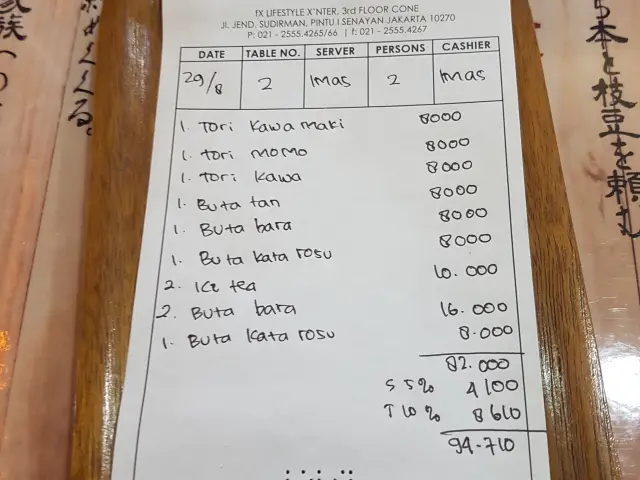 fX LIFESTYLE X'NTER, 3rd FLOOR CONE
Jl. JEND. SUDIRMAN, PINTU I SENAYAN JAKARTA 10270
P: 021 - 2555.4265/66 | f: 021 - 2555.4267
DATE TABLE NO. SERVER PERSONS CASHIER
29/8 2 IMAS 2 IMAS
1. TORI KAWA MAKI 8000
1. TORI MOMO 8000
1. TORI KAWA 8000
1. BUTA tan 8000
1. BUTA bara 8000
1. BUTA KATA ROSU 8000
2. ICE tea 10.000
2. BUTA bara 16.000
1. BUTA KATA ROSU 8.000
82.000
S 5% 4100
T 10% 8610
94.710
家族
本と枝豆を頼む